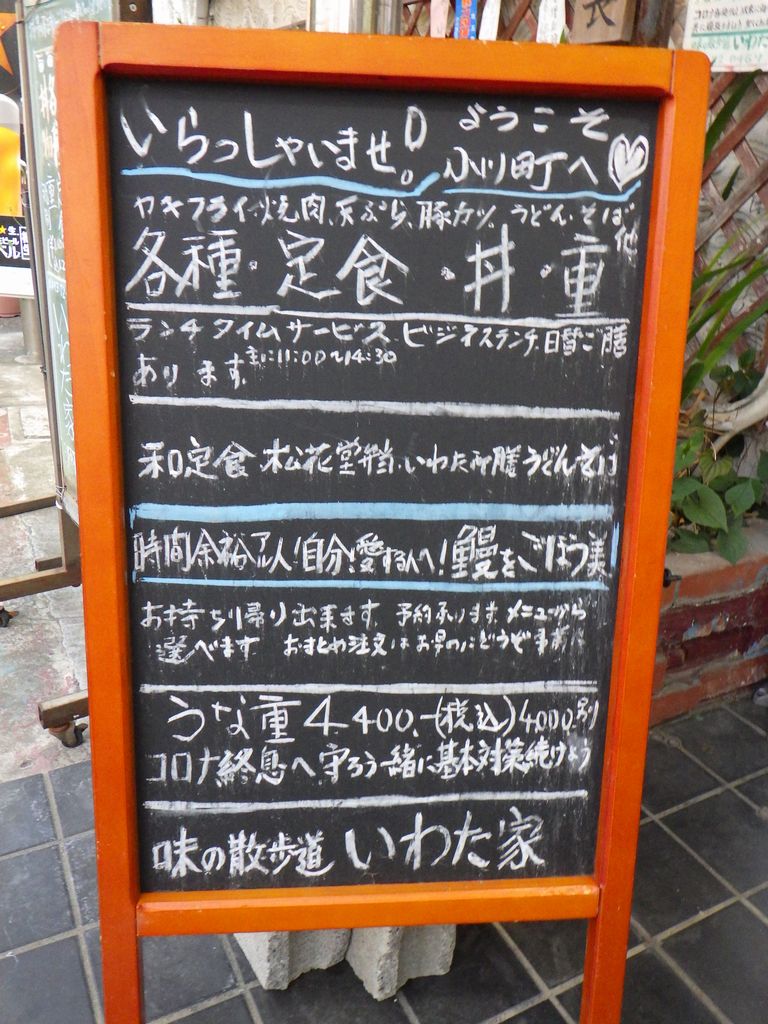 いらっしゃいませ。 ようこそ
小川町へ♡
カキフライ、焼肉、天ぷら、豚カツ、うどん、そば他
各種・定食・丼・重
ランチタイムサービス ビジネスランチ、日替ご膳
あります。主に11:00〜14:30
和定食、松花堂弁当、いわた御膳 うどんそば
時間余裕アル人!自分!愛する人へ!鰻をごほう美
お持ち帰り出来ます。予約承ります。メニューから
選べます おまとめ注文はお早めにどうぞ
うな重 4,400.-(税込)4000別
コロナ終息へ守ろう一緒に基本対策続けよう
味の散歩道 いわた家